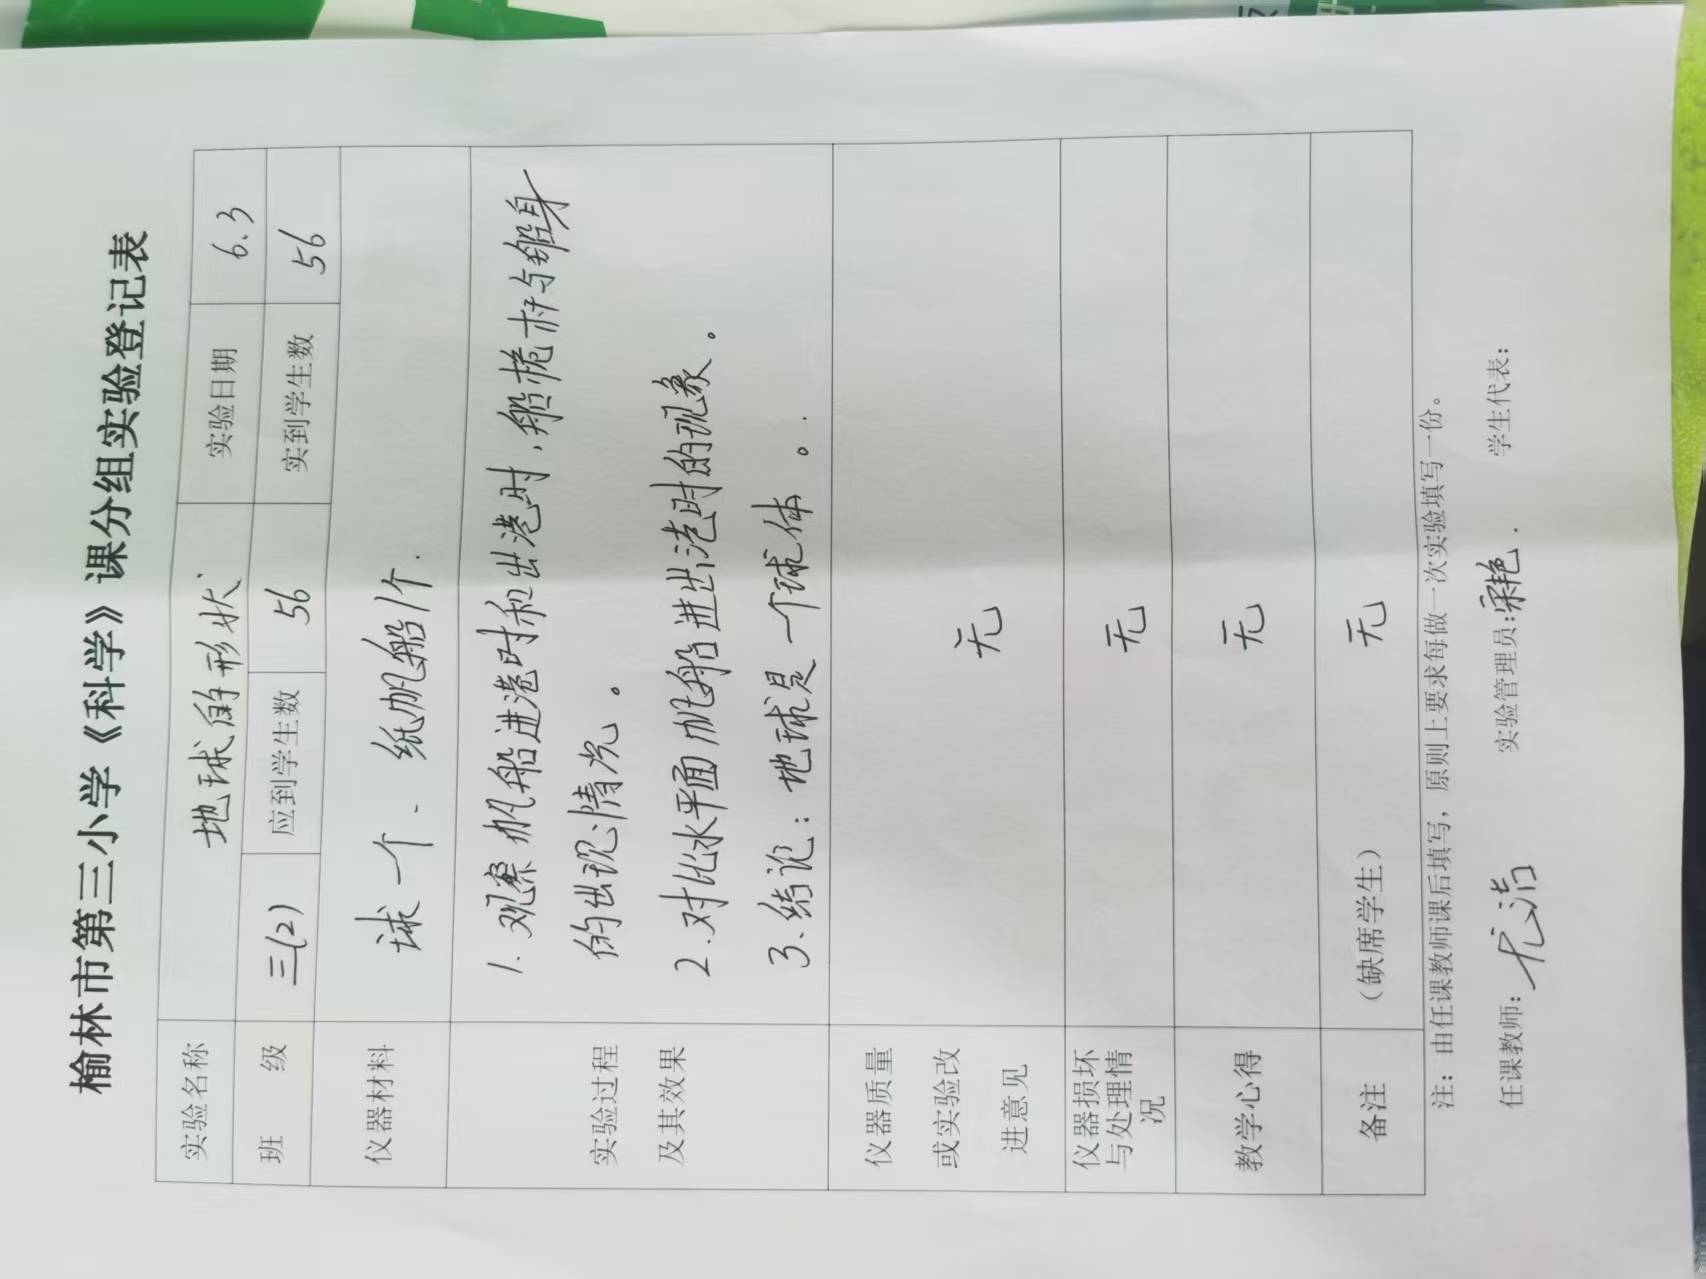 榆林市第三小学《科学》课分组实验登记表
实验名称 地球的形状 实验日期 6.3
班 级 三(2) 应到学生数 56 实到学生数 56
仪器材料 球一个、纸帆船1个.
实验过程
及其效果
1.观察帆船进港时和出港时,船桅杆与船身
的出现情况。
2.对比水平面帆船进出港时的现象。
3.结论:地球是一个球体。
仪器质量
或实验改
进意见
无
仪器损坏
与处理情
况
无
教学心得 无
备注 (缺席学生) 无
注:由任课教师课后填写,原则上要求每做一次实验填写一份。
任课教师:尤洁 实验管理员:宋艳. 学生代表: